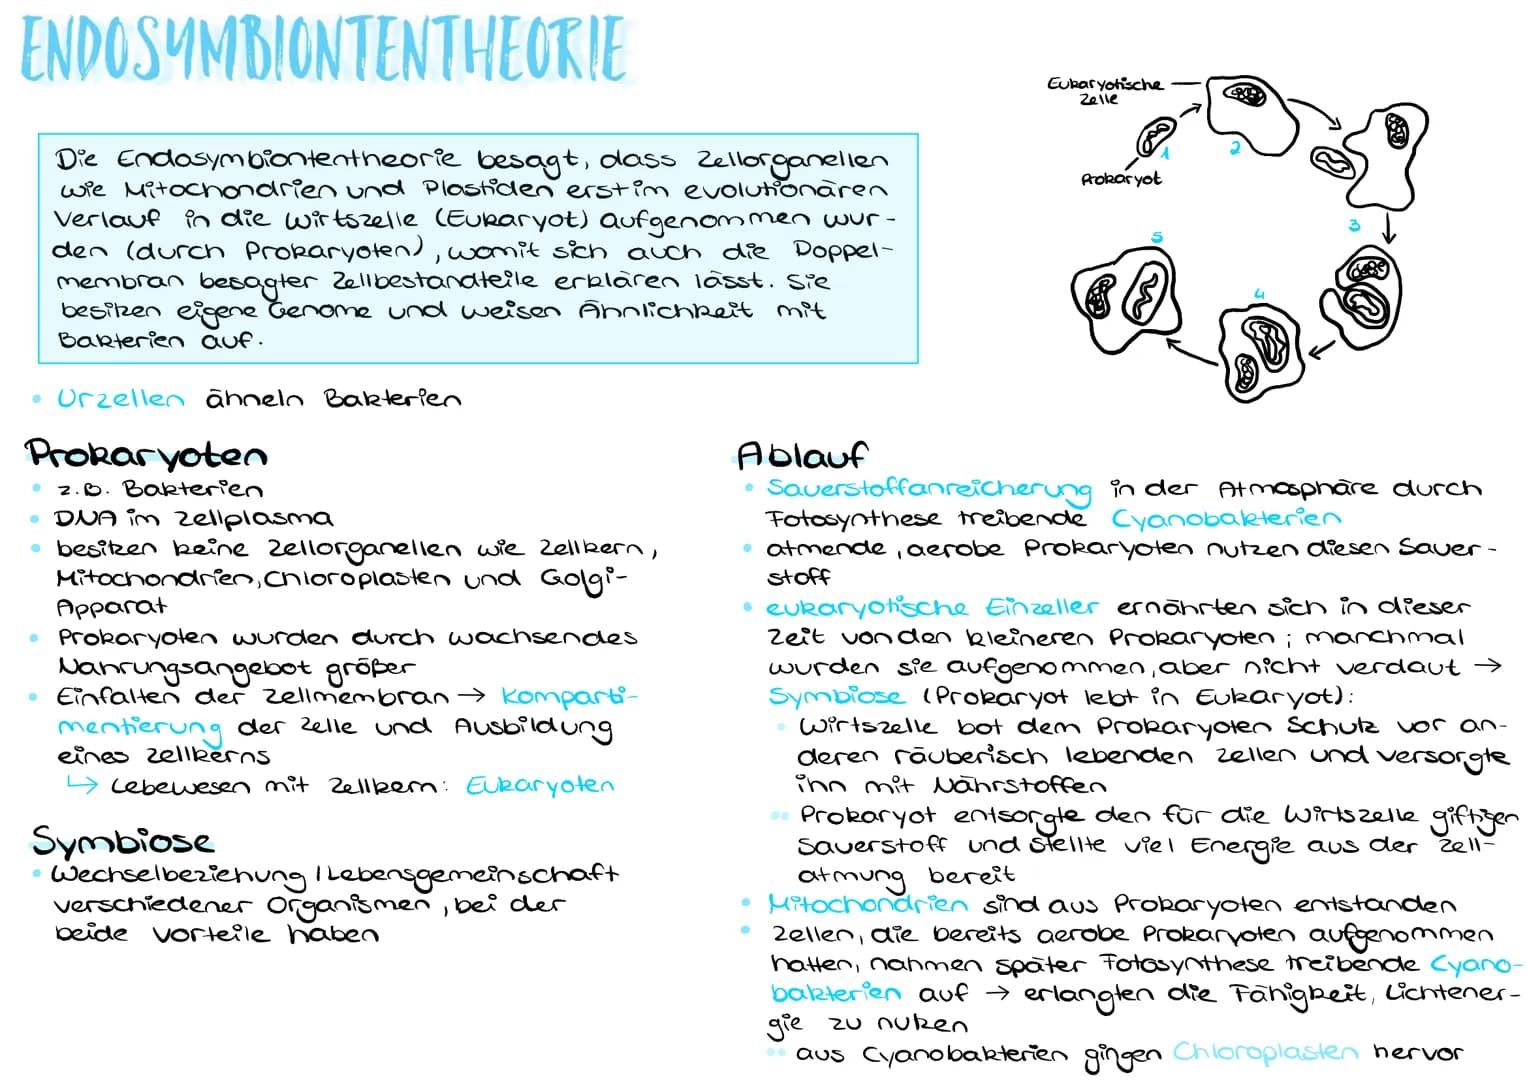 ENDOSYMBIONTENTHEORIE
Die Endosymbiontentheorie besagt, dass Zellorganellen
wie Mitochondrien und Plastiden erst im evolutionären
Verlauf in die Wirtszelle (Eukaryot) aufgenommen wur-
den (durch Prokaryoten), womit sich auch die Doppel-
membran besagter Zellbestandteile erklären lässt. Sie
besitzen eigene Genome und weisen Ähnlichkeit mit
Bakterien auf.
• Urzellen ähneln Bakterien
Eukaryotische
Zelle
Prokaryot
1
2
3
4
5
Prokaryoten
• z.B. Bakterien
• DNA im Zellplasma
• besitzen keine Zellorganellen wie Zellkern,
Mitochondrien, Chloroplasten und Golgi-
Apparat
• Prokaryoten wurden durch wachsendes
Nahrungsangebot größer
• Einfalten der Zellmembran → Komparti-
mentierung der Zelle und Ausbildung
eines Zellkerns
↳ Lebewesen mit Zellkern: Eukaryoten
Symbiose
• Wechselbeziehung / Lebensgemeinschaft
verschiedener Organismen, bei der
beide Vorteile haben
Ablauf
• Sauerstoffanreicherung in der Atmosphäre durch
Fotosynthese treibende Cyanobakterien
• atmende, aerobe Prokaryoten nutzen diesen Sauer-
stoff
• eukaryotische Einzeller ernährten sich in dieser
Zeit von den kleineren Prokaryoten; manchmal
wurden sie aufgenommen, aber nicht verdaut →
Symbiose (Prokaryot lebt in Eukaryot):
• Wirtszelle bot dem Prokaryoten Schutz vor an-
deren räuberisch lebenden Zellen und versorgte
ihn mit Nährstoffen
•• Prokaryot entsorgte den für die Wirtszelle giftigen
Sauerstoff und stellte viel Energie aus der Zell-
atmung bereit
• Mitochondrien sind aus Prokaryoten entstanden
• Zellen, die bereits aerobe Prokaryoten aufgenommen
hatten, nahmen später Fotosynthese treibende Cyano-
bakterien auf → erlangten die Fähigkeit, Lichtener-
gie zu nutzen
•• aus Cyanobakterien gingen Chloroplasten hervor